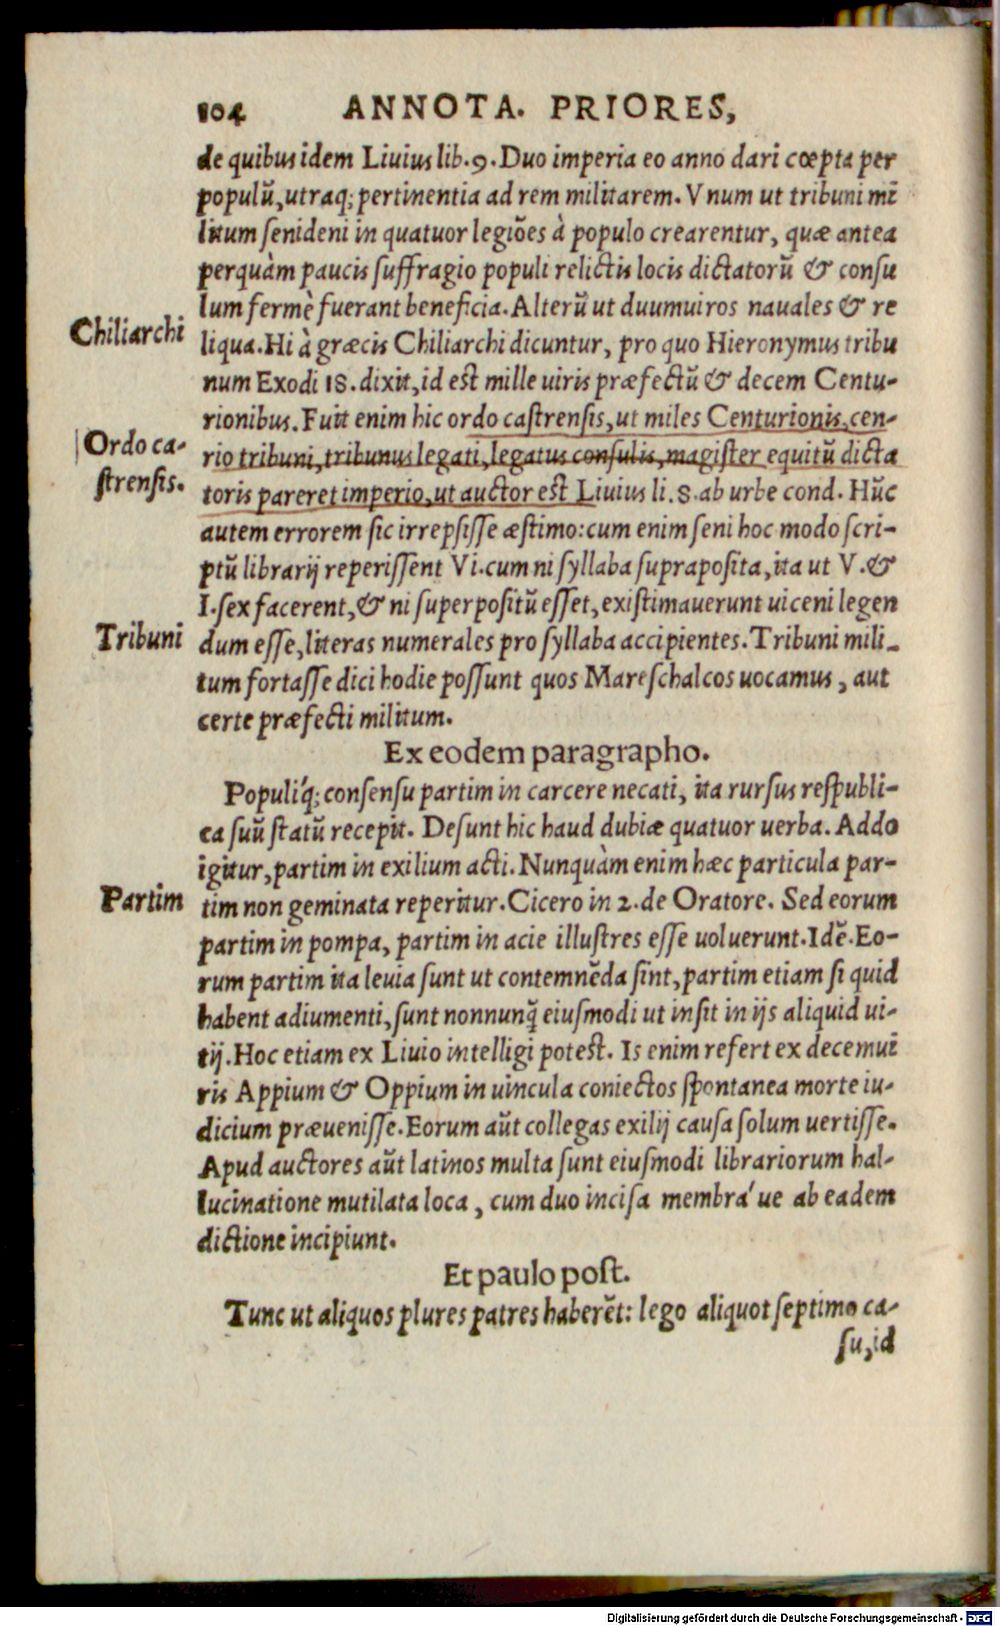 104 ANNOTA. PRIORES,
de quibus idem Liuius lib.9. Duo imperia eo anno dari cœpta per
populũ, utraq; pertinentia ad rem militarem. Vnum ut tribuni mĩ
litum senideni in quatuor legiões à populo crearentur, quæ antea
perquàm paucis suffragio populi relictis locis dictatorũ & consu
lum fermè fuerant beneficia. Alterũ ut duumuiros nauales & re
Chiliarchi
liqua. Hi à græcis Chiliarchi dicuntur, pro quo Hieronymus tribu
num Exodi 18. dixit, id est mille uiris præfectũ & decem Centu-
rionibus. Fuit enim hic ordo castrensis, ut miles Centurionis, cen-
Ordo ca-
strensis.
rio tribuni, tribunus legati, legatus consulis, magister equitũ dicta
toris pareret imperio, ut auctor est Liuius li.8. ab urbe cond. Hũc
autem errorem sic irrepsisse æstimo: cum enim seni hoc modo scri-
ptũ librarij reperissent Vi. cum ni syllaba supraposita, ita ut V. &
I. sex facerent, & ni superpositũ esset, existimauerunt uiceni legen
Tribuni
dum esse, literas numerales pro syllaba accipientes. Tribuni mili-
tum fortasse dici hodie possunt quos Mareschalcos uocamus, aut
certe præfecti militum.
Ex eodem paragrapho.
Populi'q; consensu partim in carcere necati, ita rursus respubli-
ca suũ statũ recepit. Desunt hic haud dubiæ quatuor uerba. Addo
igitur, partim in exilium acti. Nunquàm enim hæc particula par-
Partim
tim non geminata reperitur. Cicero in 2. de Oratore. Sed eorum
partim in pompa, partim in acie illustres esse uoluerunt. Idẽ. Eo-
rum partim ita leuia sunt ut contemnẽda sint, partim etiam si quid
habent adiumenti, sunt nonnunq̃ eiusmodi ut insit in ijs aliquid ui-
tij. Hoc etiam ex Liuio intelligi potest. Is enim refert ex decemuĩ
ris Appium & Oppium in uincula coniectos spontanea morte iu-
dicium præuenisse. Eorum aũt collegas exilij causa solum uertisse.
Apud auctores aũt latinos multa sunt eiusmodi librariorum hal-
lucinatione mutilata loca, cum duo incisa membra'ue ab eadem
dictione incipiunt.
Et paulo post.
Tunc ut aliquos plures patres haberẽt: lego aliquot septimo ca-
su, id
Digitalisierung gefördert durch die Deutsche Forschungsgemeinschaft - DFG